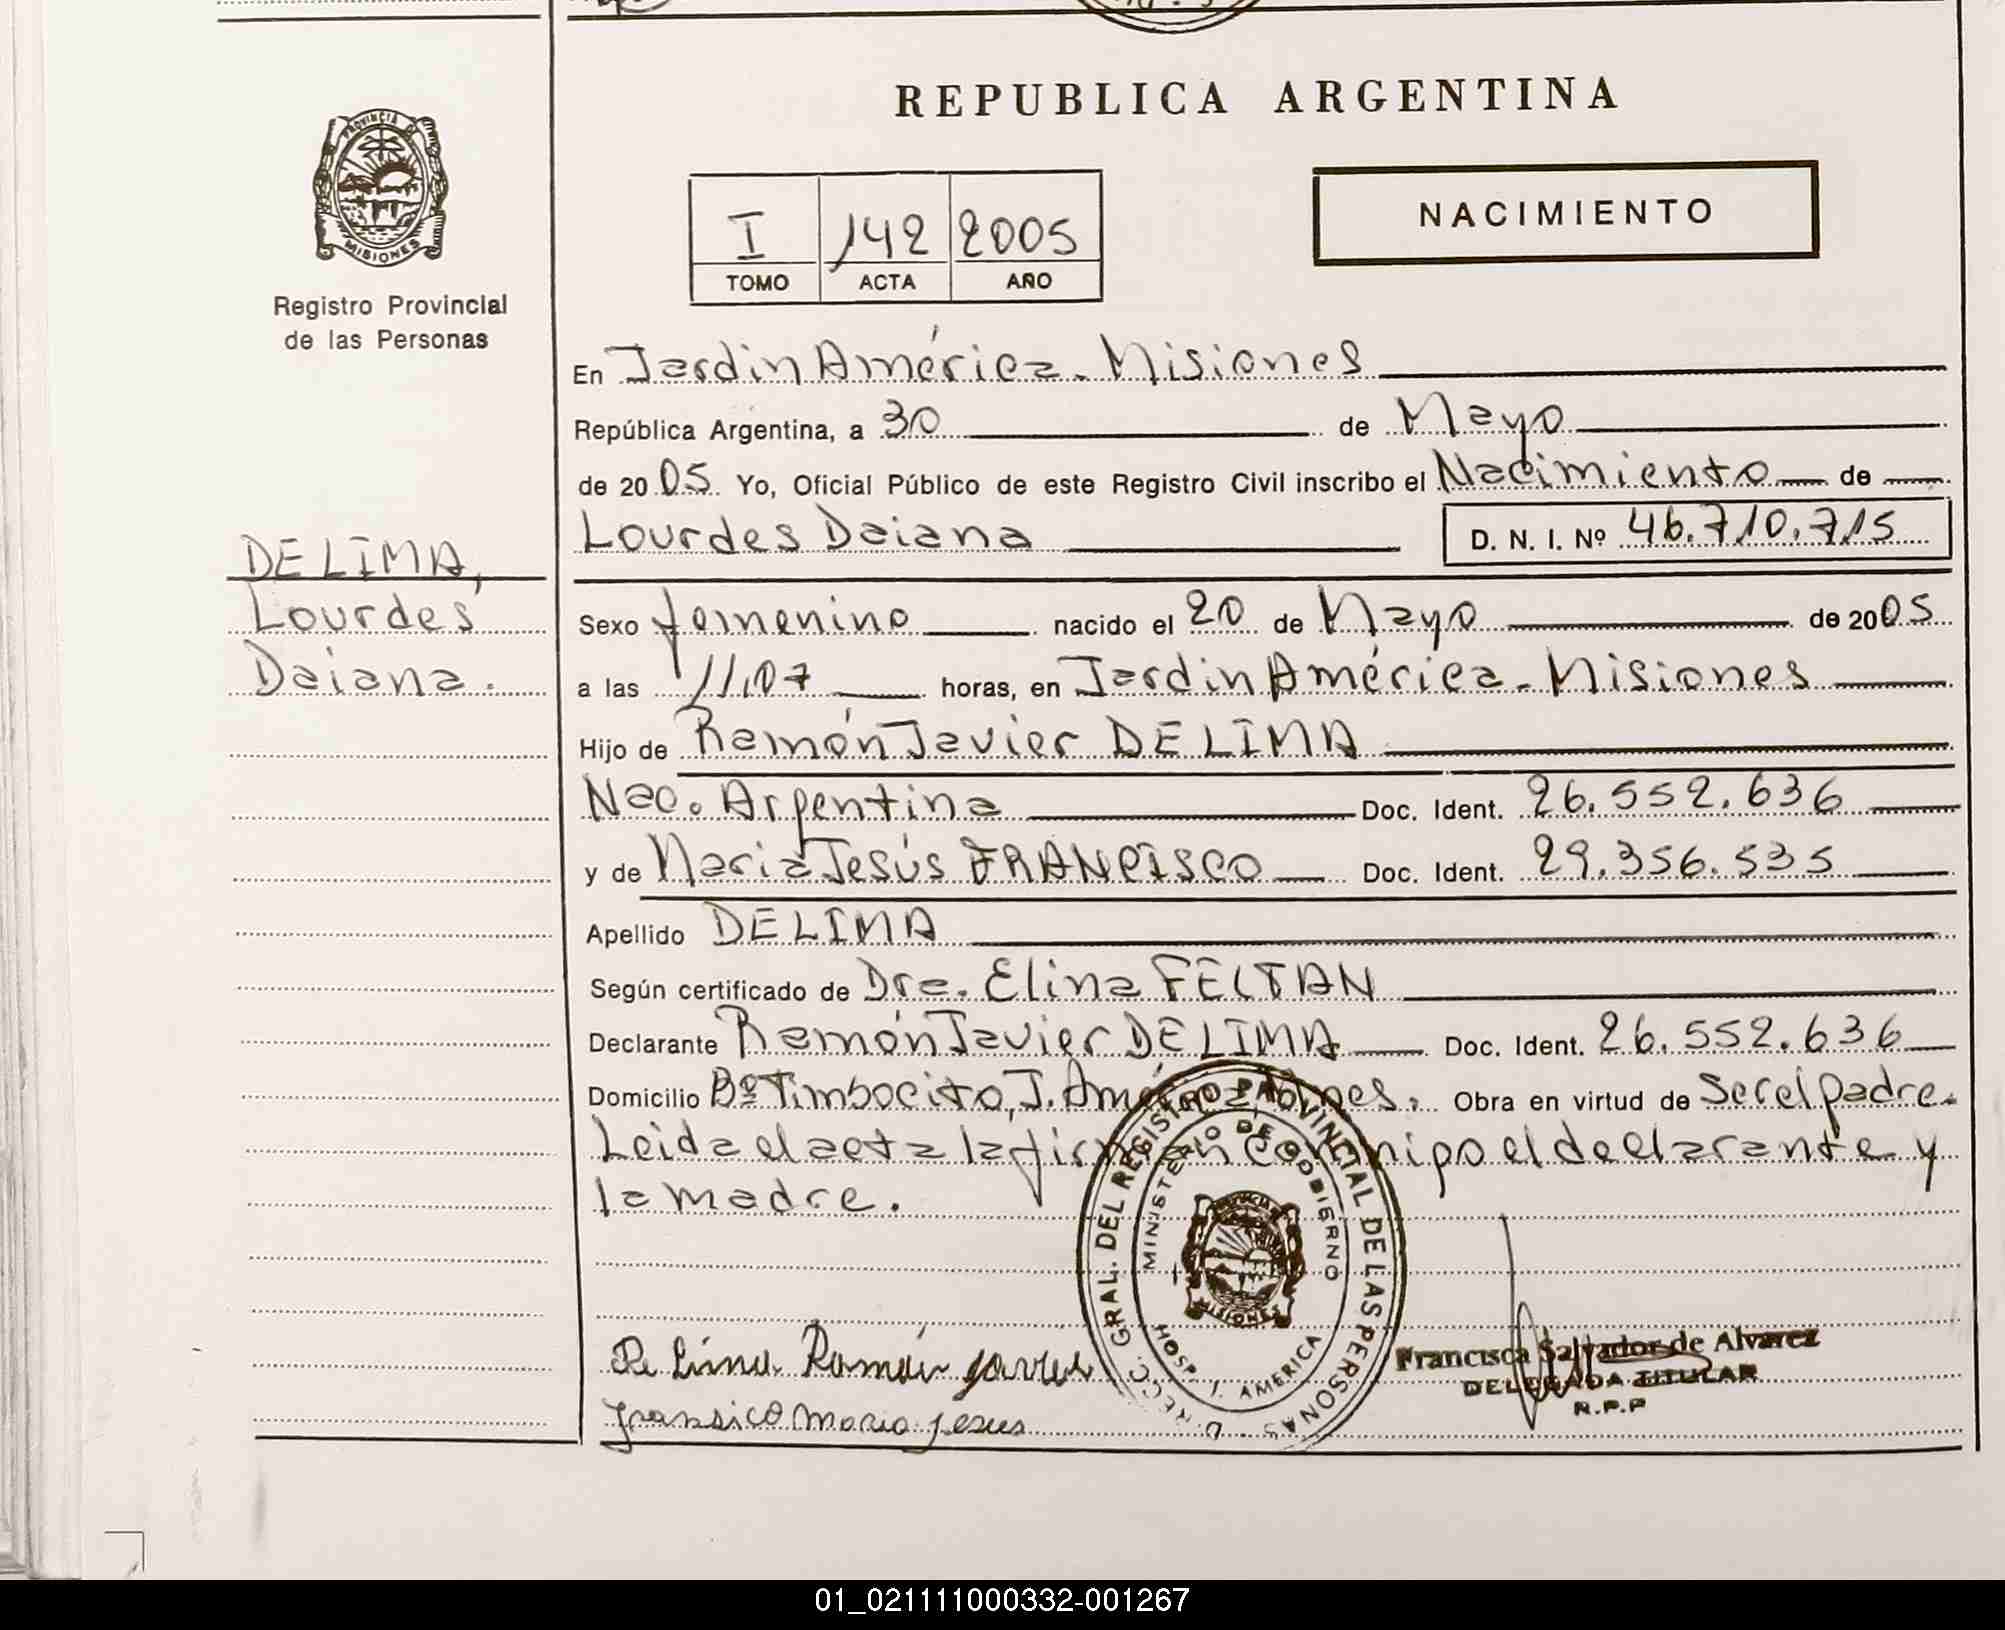 REPUBLICA ARGENTINA
PROVINCIA DE
MISIONES
Registro Provincial
de las Personas
I 142 2005
TOMO ACTA AÑO
NACIMIENTO
En Jardin América. Misiones
República Argentina, a 30 de Mayo
de 2005. Yo, Oficial Público de este Registro Civil inscribo el Nacimiento de
Lourdes Daiana D. N. I. Nº 46.710.715
DE LIMA,
Lourdes
Daiana.
Sexo femenino nacido el 20 de Mayo de 2005
a las 11,07 horas, en Jardin América. Misiones
Hijo de Ramón Javier DE LIMA
Nac. Argentina Doc. Ident. 26.552.636
y de Maria Jesús FRANCISCO Doc. Ident. 29.356.535
Apellido DE LIMA
Según certificado de Dra. Elina FELTAN
Declarante Ramón Javier DE LIMA Doc. Ident. 26.552.636
Domicilio Bº Timbocito, J. América, Mnes. Obra en virtud de Ser el padre.
Leida el acta la firman conmigo el declarante y
la madre.
DIRECC. GRAL. DEL REGISTRO PROVINCIAL DE LAS PERSONAS
MINISTERIO DE GOBIERNO
MISIONES
HOSP. J. AMERICA
De Lima Ramón Javier
Fransico Maria Jesus
Francisca Salvador de Alvarez
DELEGADA TITULAR
R.P.P
01_021111000332-001267